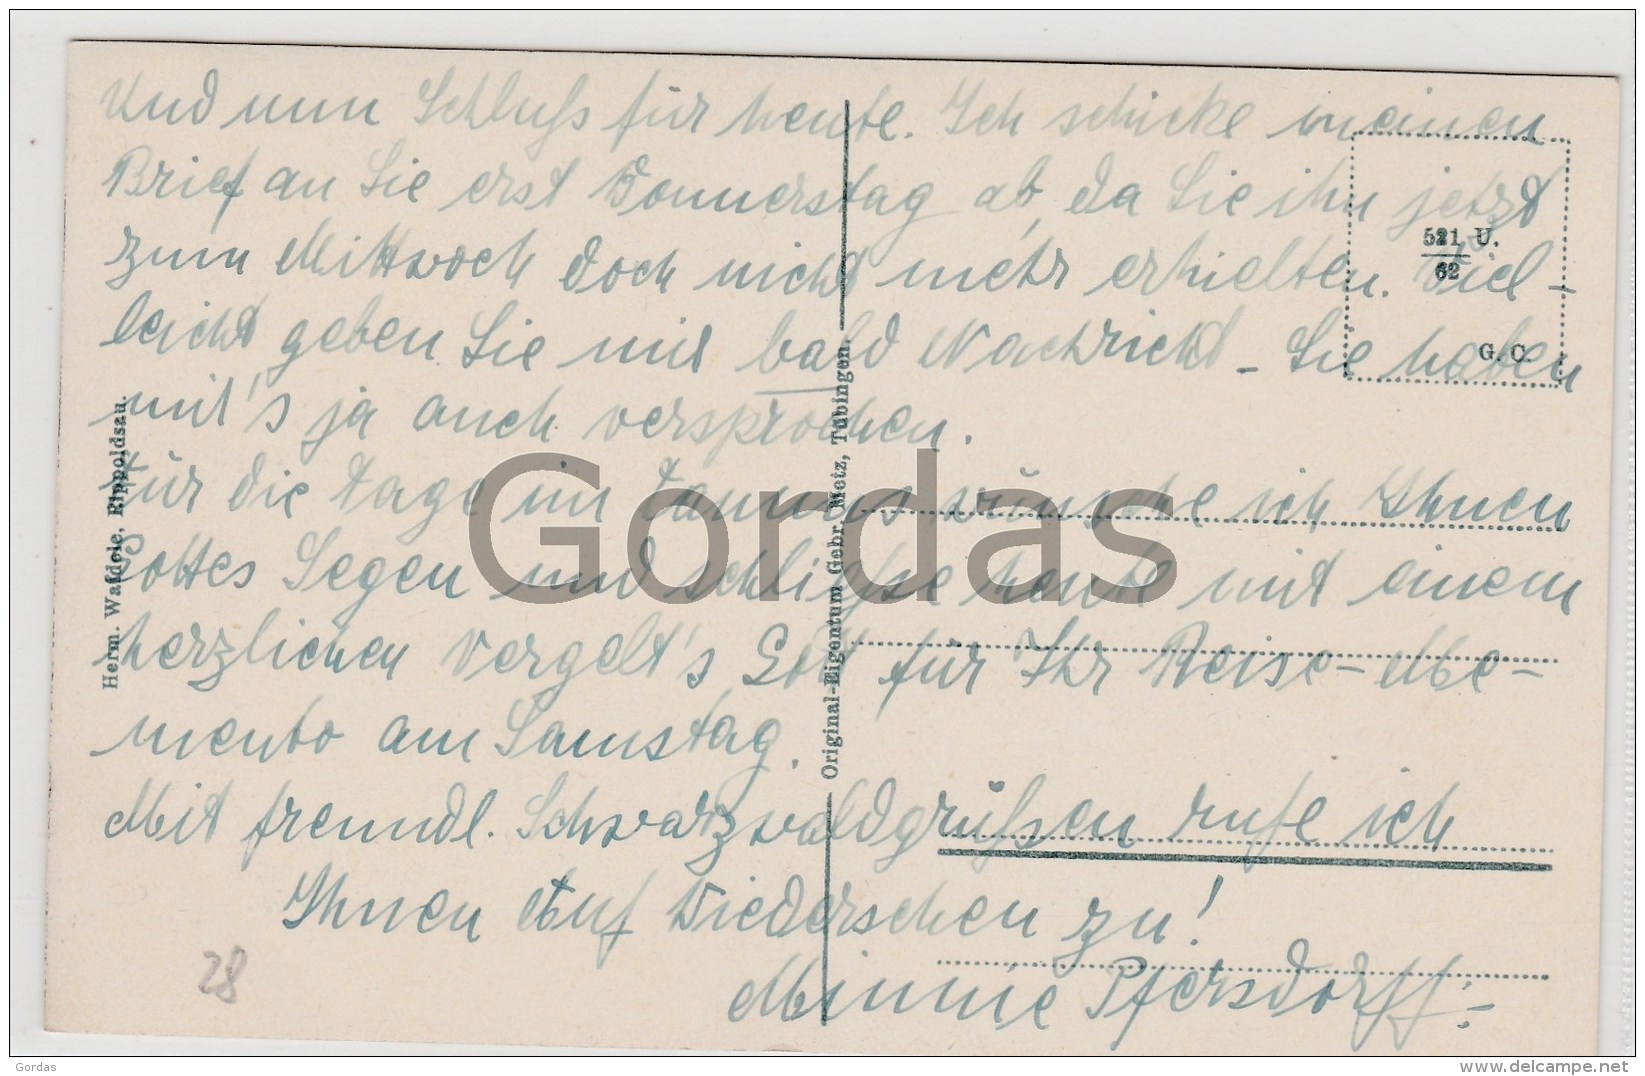 Und nun Schluß für heute. Ich schicke meinen
Brief an Sie erst Donnerstag ab, da Sie ihn jetzt
zum Mittwoch doch nicht mehr erhielten. Viel-
leicht geben Sie mir bald Nachricht - Sie haben
mir's ja auch versprochen.
Für die Tage im Taunus wünsche ich Ihnen
Gottes Segen und schließe heute mit einem
herzlichen Vergelt's Gott für Ihr Reise-Me-
mento am Samstag.
Mit freundl. Schwarzwaldgrüßen rufe ich
Ihnen Auf Wiedersehen zu!
Minnie Pfersdorff.-
28
Herm. Waidele, Rippoldsau.
Original-Eigentum Gebr. Metz, Tübingen.
521 U.
62
G. C.
Gordas
Gordas
www.delcampe.net